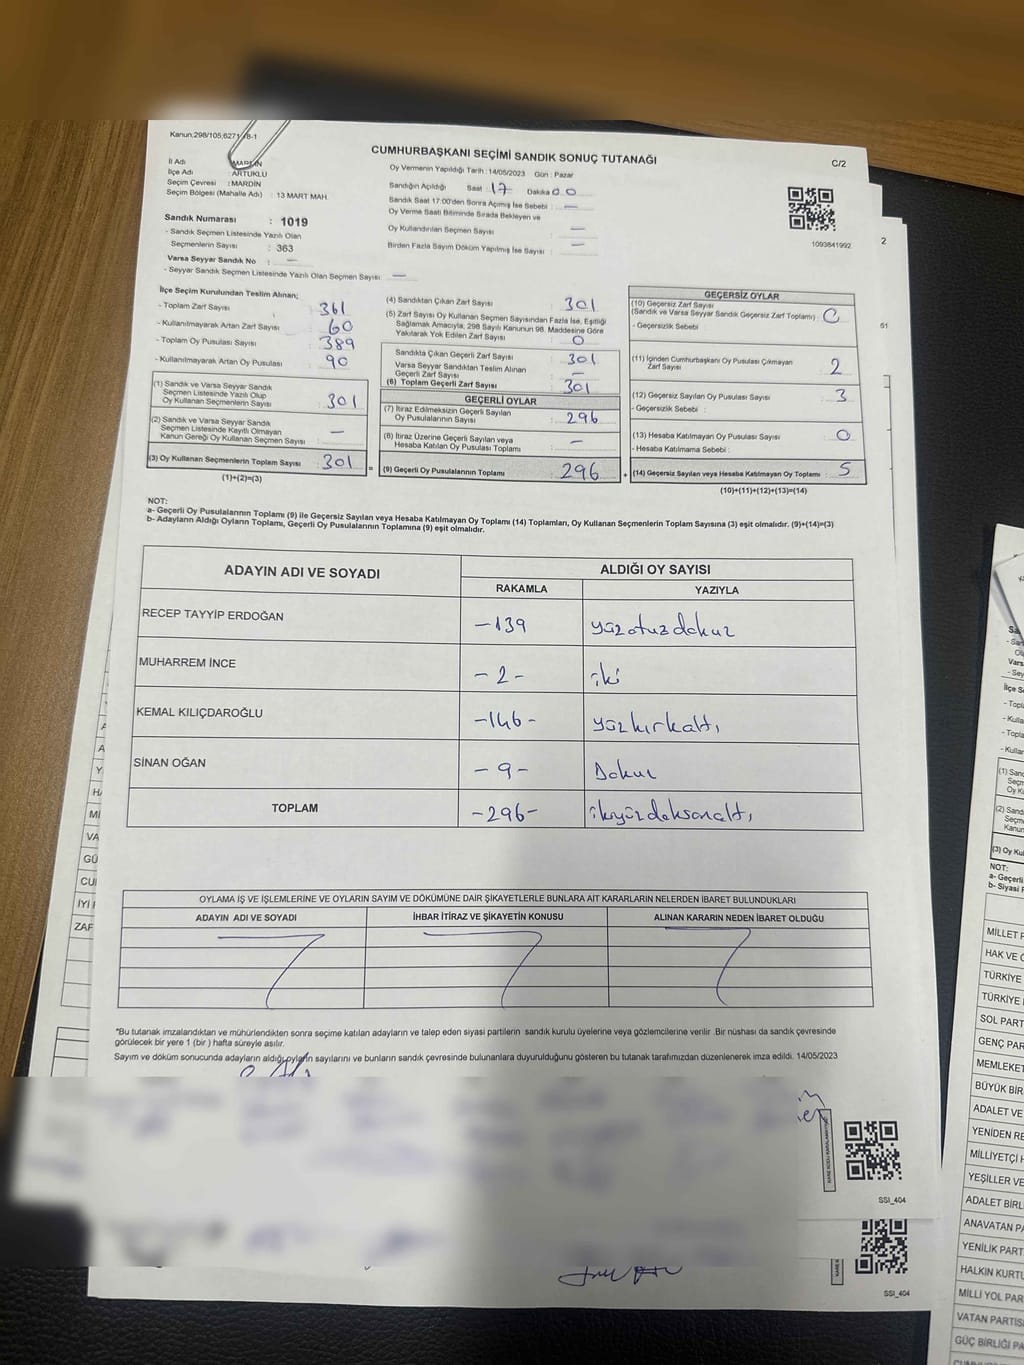 Kanun,298/105;6271/8-1
CUMHURBAŞKANI SEÇİMİ SANDIK SONUÇ TUTANAĞI
C/2
İl Adı : MARDİN
İlçe Adı : ARTUKLU
Seçim Çevresi : MARDİN
Seçim Bölgesi (Mahalle Adı) : 13 MART MAH.
Oy Vermenin Yapıldığı Tarih : 14/05/2023 Gün : Pazar
Sandığın Açıldığı Saat : 17 Dakika 00
Sandık Saat 17:00'den Sonra Açılmış İse Sebebi : —
Oy Verme Saati Bitiminde Sırada Bekleyen ve
Oy Kullandırılan Seçmen Sayısı : —
Birden Fazla Sayım Döküm Yapılmış İse Sayısı : —
1093841992
2
Sandık Numarası : 1019
- Sandık Seçmen Listesinde Yazılı Olan
Seçmenlerin Sayısı : 363
Varsa Seyyar Sandık No : —
- Seyyar Sandık Seçmen Listesinde Yazılı Olan Seçmen Sayısı: —
İlçe Seçim Kurulundan Teslim Alınan;
- Toplam Zarf Sayısı : 361
- Kullanılmayarak Artan Zarf Sayısı : 60
- Toplam Oy Pusulası Sayısı : 389
- Kullanılmayarak Artan Oy Pusulası : 90
(1) Sandık ve Varsa Seyyar Sandık
Seçmen Listesinde Yazılı Olup
Oy Kullanan Seçmenlerin Sayısı : 301
(2) Sandık ve Varsa Seyyar Sandık
Seçmen Listesinde Kayıtlı Olmayan
Kanun Gereği Oy Kullanan Seçmen Sayısı : —
(3) Oy Kullanan Seçmenlerin Toplam Sayısı : 301
(1)+(2)=(3)
(4) Sandıktan Çıkan Zarf Sayısı : 301
(5) Zarf Sayısı Oy Kullanan Seçmen Sayısından Fazla İse, Eşitliği
Sağlamak Amacıyla; 298 Sayılı Kanunun 98. Maddesine Göre
Yakılarak Yok Edilen Zarf Sayısı : 0
Sandıkta Çıkan Geçerli Zarf Sayısı : 301
Varsa Seyyar Sandıktan Teslim Alınan
Geçerli Zarf Sayısı : —
(6) Toplam Geçerli Zarf Sayısı : 301
GEÇERLİ OYLAR
(7) İtiraz Edilmeksizin Geçerli Sayılan
Oy Pusulalarının Sayısı : 296
(8) İtiraz Üzerine Geçerli Sayılan veya
Hesaba Katılan Oy Pusulası Toplamı : —
(9) Geçerli Oy Pusulalarının Toplamı : 296
GEÇERSİZ OYLAR
(10) Geçersiz Zarf Sayısı
(Sandık ve Varsa Seyyar Sandık Geçersiz Zarf Toplamı) : 0
- Geçersizlik Sebebi :
(11) İçinden Cumhurbaşkanı Oy Pusulası Çıkmayan
Zarf Sayısı : 2
(12) Geçersiz Sayılan Oy Pusulası Sayısı : 3
- Geçersizlik Sebebi :
(13) Hesaba Katılmayan Oy Pusulası Sayısı : 0
- Hesaba Katılmama Sebebi :
(14) Geçersiz Sayılan veya Hesaba Katılmayan Oy Toplamı : 5
(10)+(11)+(12)+(13)=(14)
NOT:
a- Geçerli Oy Pusulalarının Toplamı (9) ile Geçersiz Sayılan veya Hesaba Katılmayan Oy Toplamı (14) Toplamları, Oy Kullanan Seçmenlerin Toplam Sayısına (3) eşit olmalıdır. (9)+(14)=(3)
b- Adayların Aldığı Oyların Toplamı, Geçerli Oy Pusulalarının Toplamına (9) eşit olmalıdır.
ADAYIN ADI VE SOYADI ALDIĞI OY SAYISI
RAKAMLA YAZIYLA
RECEP TAYYİP ERDOĞAN -139 yüzotuzdokuz
MUHARREM İNCE -2- iki
KEMAL KILIÇDAROĞLU -146- yüzkırkaltı
SİNAN OĞAN -9- Dokuz
TOPLAM -296- ikiyüzdoksanaltı
OYLAMA İŞ VE İŞLEMLERİNE VE OYLARIN SAYIM VE DÖKÜMÜNE DAİR ŞİKAYETLERLE BUNLARA AİT KARARLARIN NELERDEN İBARET BULUNDUKLARI
ADAYIN ADI VE SOYADI İHBAR İTİRAZ VE ŞİKAYETİN KONUSU ALINAN KARARIN NEDEN İBARET OLDUĞU
*Bu tutanak imzalandıktan ve mühürlendikten sonra seçime katılan adayların ve talep eden siyasi partilerin sandık kurulu üyelerine veya gözlemcilerine verilir. Bir nüshası da sandık çevresinde
görülecek bir yere 1 (bir) hafta süreyle asılır.
Sayım ve döküm sonucunda adayların aldığı oyların sayılarını ve bunların sandık çevresinde bulunanlara duyurulduğunu gösteren bu tutanak tarafımızdan düzenlenerek imza edildi. 14/05/2023
SSI_404
SSI_404
MİLLET
HAK VE
TÜRKİYE
TÜRKİYE
SOL PART
GENÇ PAR
MEMLEKET
BÜYÜK BİR
ADALET VE
YENİDEN RE
MİLLİYETÇİ H
YEŞİLLER VE
ADALET BİRL
ANAVATAN PA
YENİLİK PART
HALKIN KURTU
MİLLİ YOL PAR
VATAN PARTİS
GÜÇ BİRLİĞİ PA